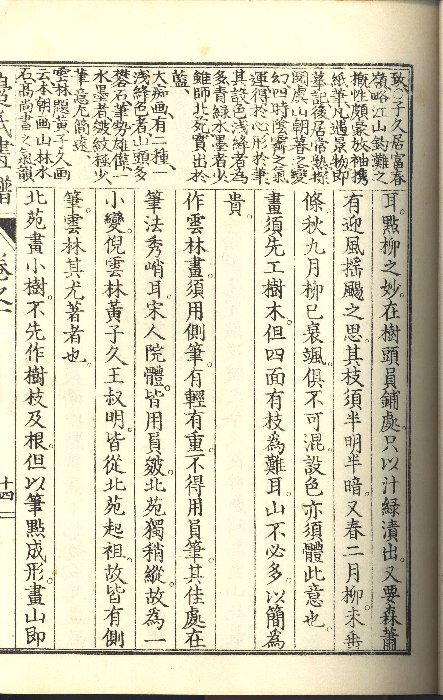 致、黄子久居富春
領略江山釣灘之
概性頗豪放袖携
紙筆凡遇景物即
摹記後居常熟探
閱虞山朝暮之變
幻四時陰霽之氣
運得於心形於筆
其設色淺絳者為
多青綠水墨者少
雖師北苑實出於
藍、
大痴画有二種一
淺絳色者山頭多
礬石筆勢雄偉一
水墨者皴紋極少
筆意尤簡遠、
雲林題黃子久画
云本朝画山林水
石高尚書之氣韻
耳。點柳之妙。在樹頭員鋪處。只以汁綠漬出。又要森蕭
有迎風揺颺之思。其枝須半明半暗。又春二月柳。未垂
條。秋九月柳。已衰颯。俱不可混。設色亦須體此意也。
畫須先工樹木。但四面有枝為難耳。山不必多。以簡為
貴。
作雲林畫。須用側筆。有輕有重。不得用員筆。其佳處在
筆法秀峭耳。宋人院體。皆用員皴。北苑獨稍縱。故為一
小變。倪雲林黃子久王叔明。皆從北苑起祖。故皆有側
筆。雲林其尤著者也。
北苑畫小樹。不先作樹枝及根。但以筆點成形。畫山即
卷之一
十四